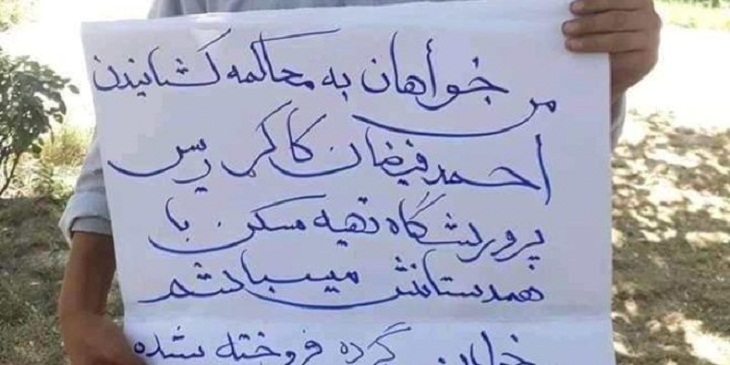 من خواهان به محاکمه کشانیدن
احمد فیضان کاکر رییس
پرورشگاه تهیه مسکن با
همدستانش میباشم
خواهان گرده فروخته شده